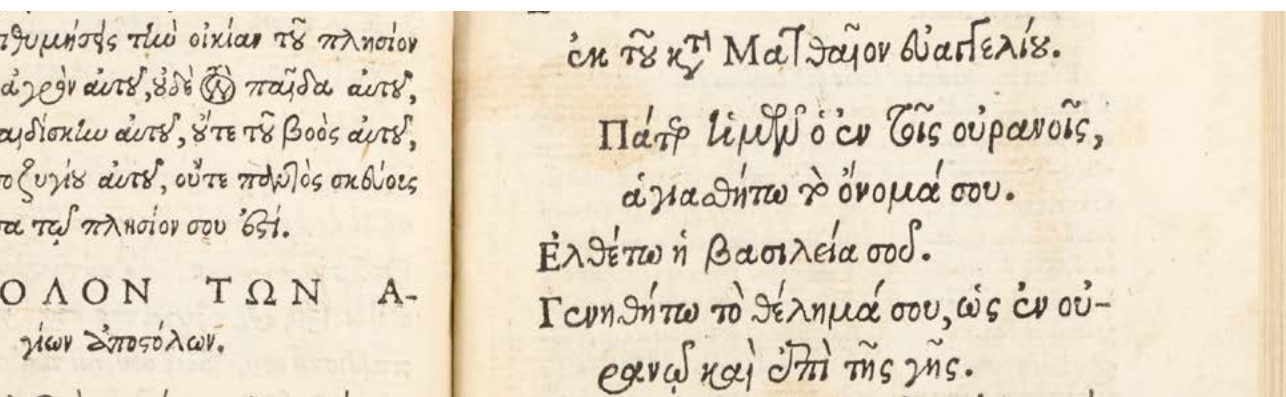 τὴν οἰκίαν τοῦ πλησίον
ἀγρὸν αὐτοῦ, οὐδὲ τὸν παῖδα αὐτοῦ,
αὐτοῦ, οὔτε τοῦ βοὸς αὐτοῦ,
αὐτοῦ, οὔτε παντὸς σκεύους
τῷ πλησίον σου ἐστί.
ΟΛΟΝ ΤΩΝ Α-
γίων ἀποστόλων.
ἐκ τοῦ κατὰ Ματθαῖον εὐαγγελίου.
Πάτερ ἡμῶν ὁ ἐν τοῖς οὐρανοῖς,
ἁγιασθήτω τὸ ὄνομά σου.
Ἐλθέτω ἡ βασιλεία σου.
Γενηθήτω τὸ θέλημά σου, ὡς ἐν οὐ-
ρανῷ καὶ ἐπὶ τῆς γῆς.